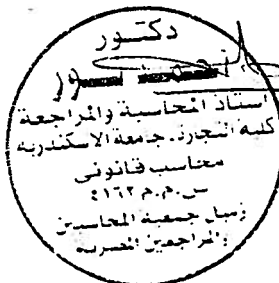 دكتور
استاذ المحاسبة والمراجعة
كلية التجارة. جامعة الاسكندرية
محاسب قانونى
س.م.م ٥١٦٢
زميل جمعية المحاسبين
والمراجعين المصرية